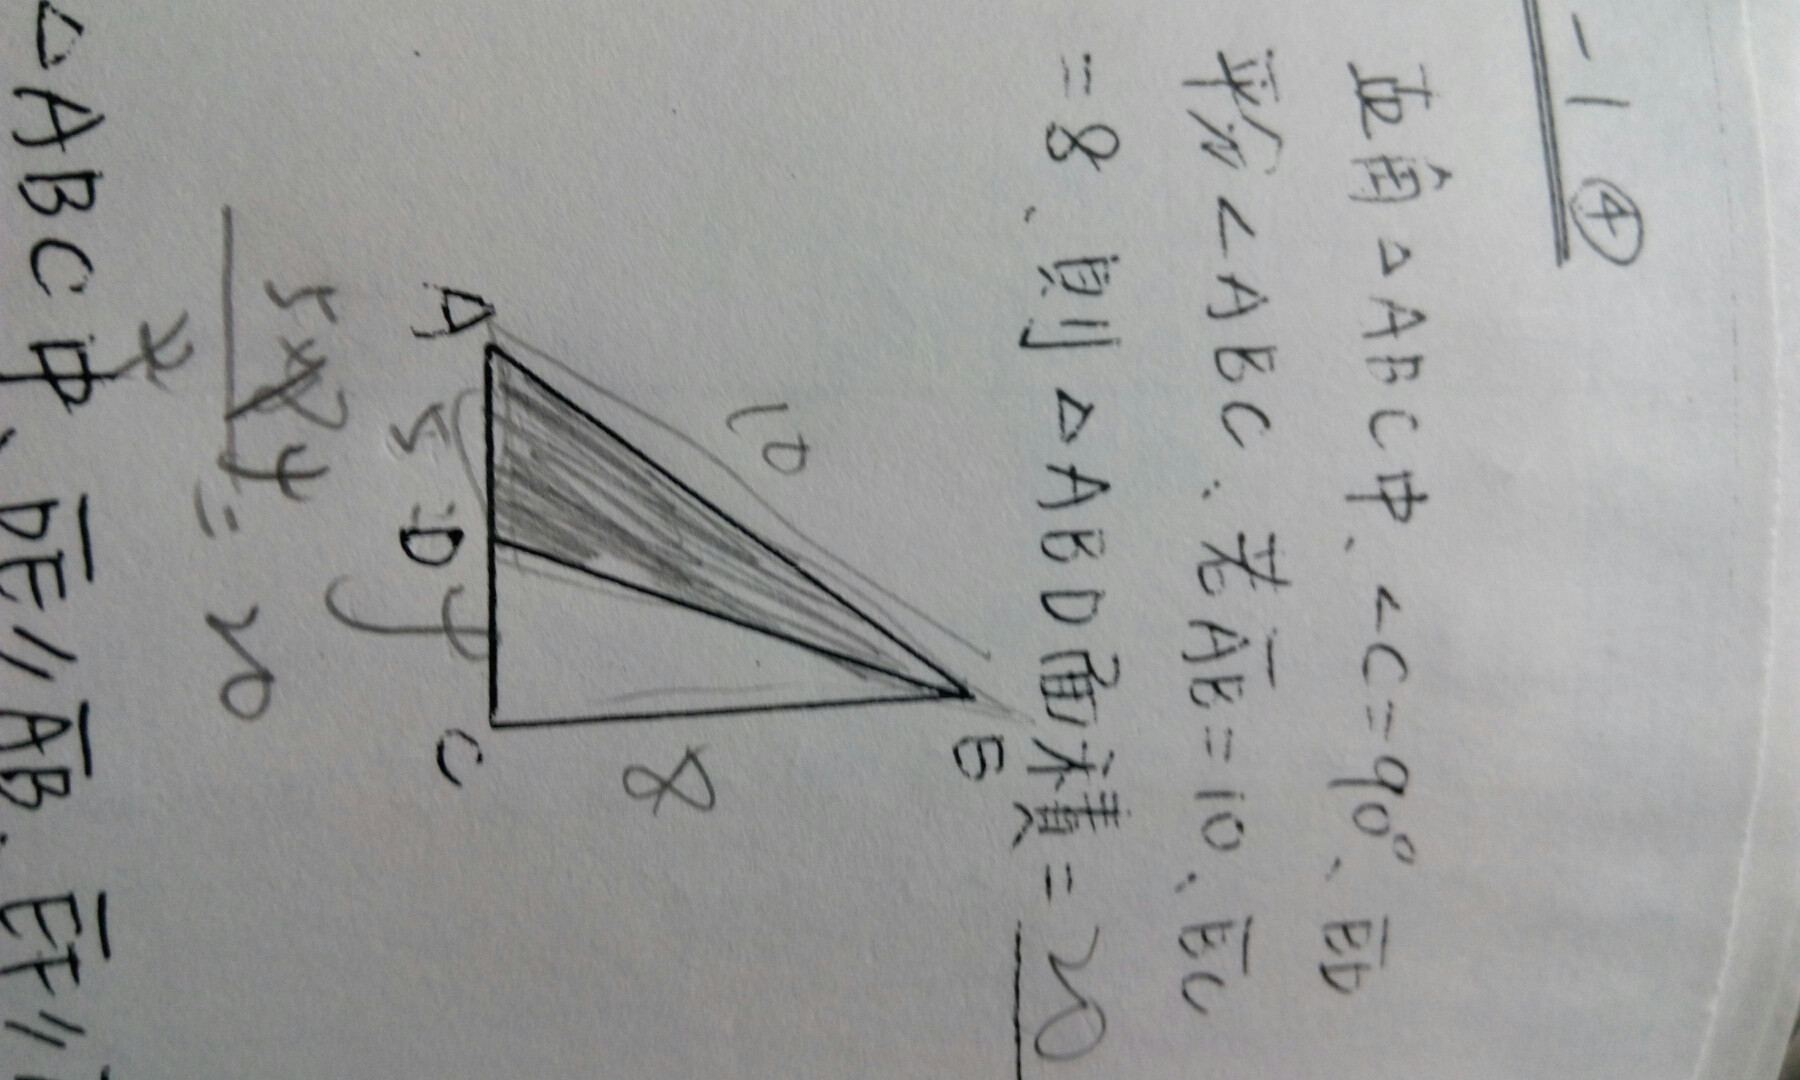 -1 ④
直角△ABC中、∠C=90°、BD
平分∠ABC、若AB=10、BC
=8、則△ABD面積=20
10
A
B
5
D
C
8
4
=20
△ABC中、DE//AB、EF//